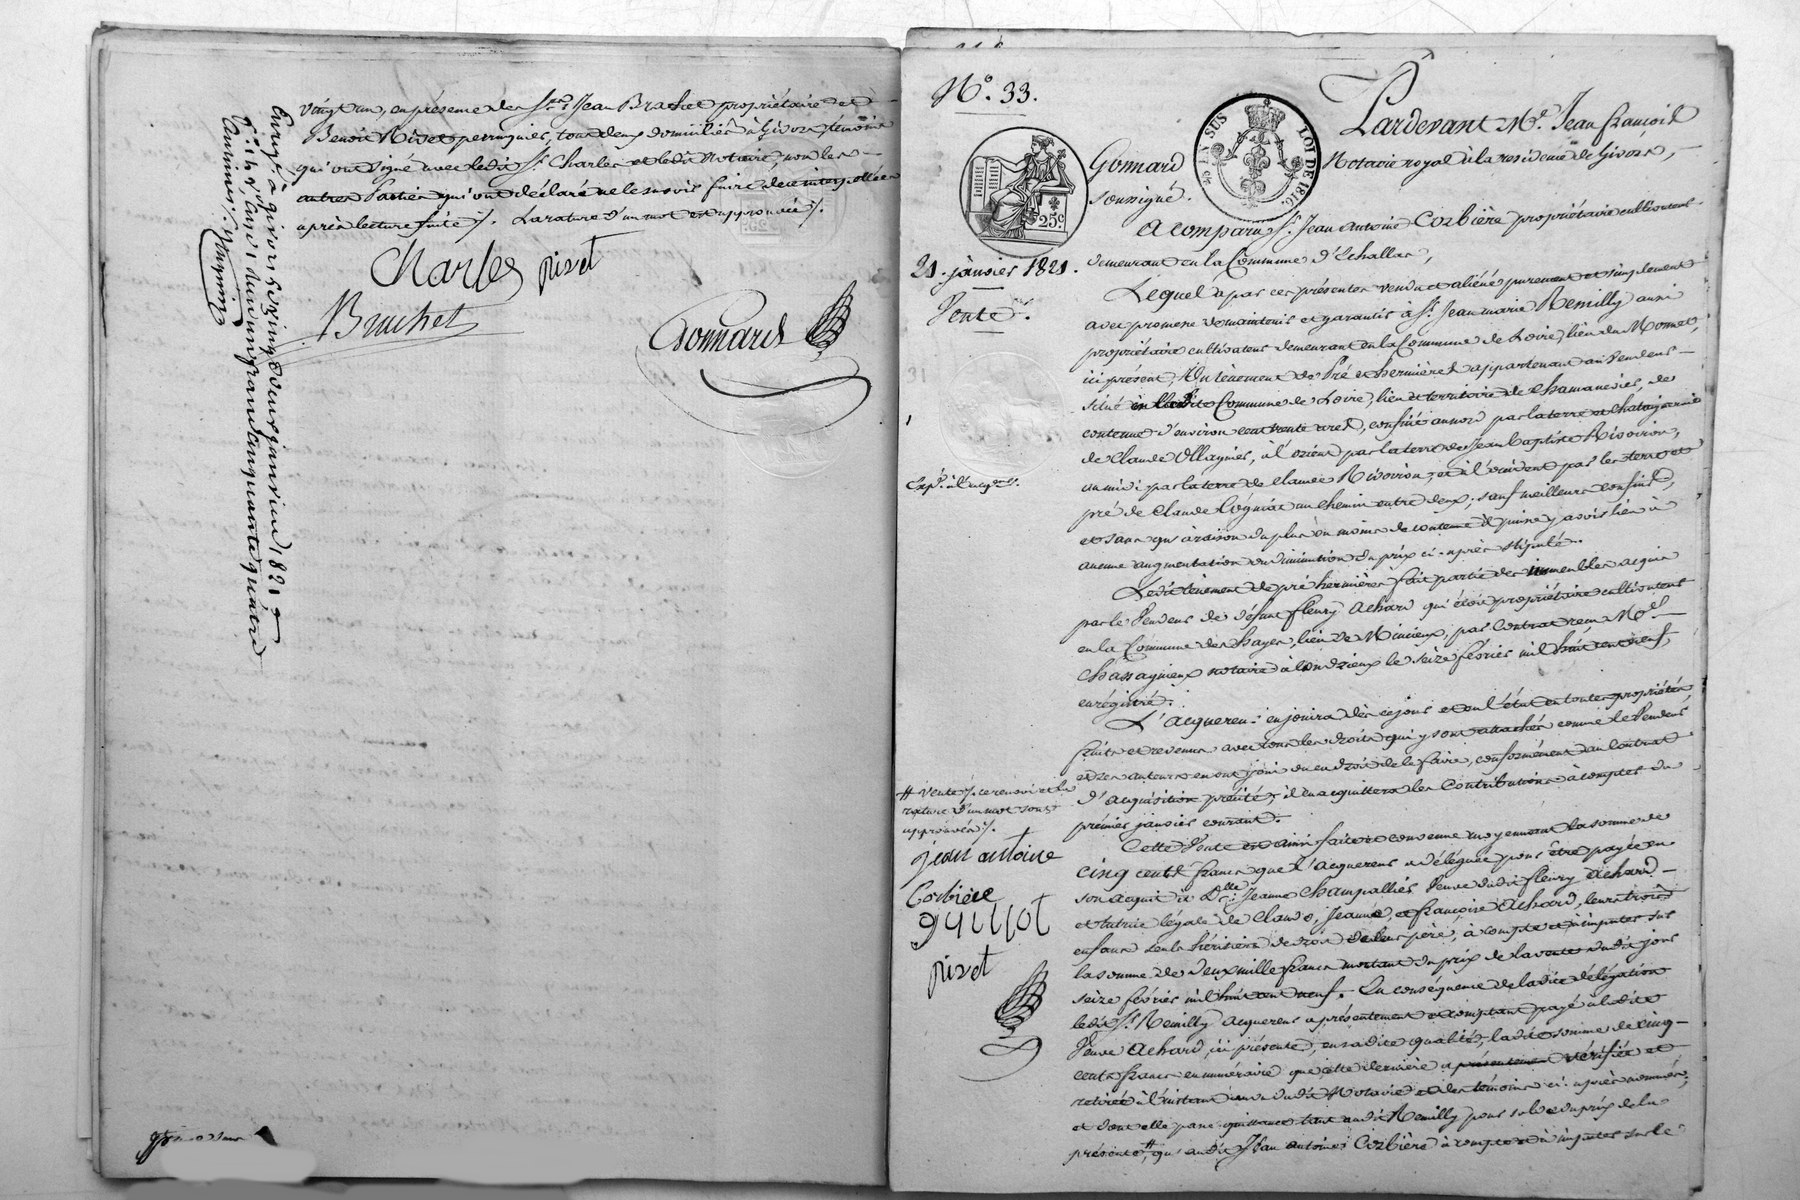 vingt un, en présence des Srs Jean Brachet propriétaire et
Benoit Rivet perruquier, tous deux domiciliés à Givors, témoins
qui ont signé avec ledit Sr Charles et ledit Notaire, non les
autres Parties qui ont déclaré ne le savoir faire de ce interpellées
après lecture faite ./. La rature d'un mot est approuvée ./.
Charles pivet
Brachet
Gonnard
Enregé à givors le vingt deux janvier 1821
cinquante quatre
N°. 33.
Pardevant Me. Jean françois
EN SUS
LOI DE 1816.
25c.
Gonnard Notaire royal à la residence de Givors,
soussigné.
A comparu Sr. Jean Antoine Corbière propriétaire cultivateur
demeurant en la Commune d'Echallas,
21. janvier 1821.
Vente.
Lequel a par ces présentes vendu et aliéné purement et simplement
avec promesse de maintenir et garantir à Sr. Jean marie Remilly aussi
propriétaire cultivateur demeurant en la Commune de Loire, lieu du Mornet,
ici présent, Un tènement de Pré et hermière appartenant au Vendeur
situé en ladite Commune de Loire, lieu et territoire de
contenue d'environ cent trente ares, confiné au nord par la terre et
de Claude Ollagnier, à l'orient par la terre de Jean Baptiste Rivoiron,
au midi par la terre de Rivoiron, et à l'occident par les terre et
Expn. à l'acqr.
pré de Claude un chemin entre deux, sauf meilleurs confins,
et sans qu'à raison du plus ou moins de contenue il puisse y avoir lieu à
aucune augmentation ou diminution du prix ci-après stipulé.
Ledit tènement de pré hermières fait partie des immeubles acquis
par le Vendeur de défunt fleury Achard qui étoit propriétaire cultivateur
en la Commune des hayes, lieu de par Contrat reçu Me.
Chassagnieux notaire à Condrieux le seize février mil huit cent neuf,
enrégistré.
L'Acquereur en jouira dès ce jour et en l'état en toutes propriétés,
fruits et revenus avec tous les droits qui y sont attachés comme le Vendeur
et ses auteurs en ont joui ou eu droit de le faire, conformément au Contrat
d'acquisition précité; il en acquittera les Contributions à compter du
premier janvier courant.
# vente ./. ce renvoi et la
rature d'un mot sont
approuvés ./.
jean antoine
Corbière
guillot
pivet
Cette Vente est ainsi faite et convenue moyennant la somme de
cinq cents francs que l'acquereur a délégués pour être payés en
son acquit à Delle. Jeanne Champallier Veuve dudit fleury Achard
et tutrice légale de Claude, Jeanne et françoise Achard, leurs trois
enfans seuls héritiers de droit de leur père, à compte et à imputer sur
la somme de deux mille francs montant du prix de la vente dudit jour
seize février mil huit cent neuf. En conséquence de ladite délégation
ledit Sr. Remilly acquereur a présentement et comptant payé à ladite
Veuve Achard, ici présente, en sadite qualité, ladite somme de cinq
cents francs en numéraire que cette dernière a présentement vérifiée et
retirée à l'instant au vu dudit Notaire et des témoins ci-après nommés,
et dont elle passe quittance tant audit Remilly pour solde du prix de la
présente #, qu'audit Jean Antoine Corbière à compte et à imputer sur le